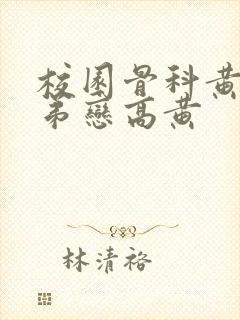 校園骨科黃
弟戀高黃
林清裕